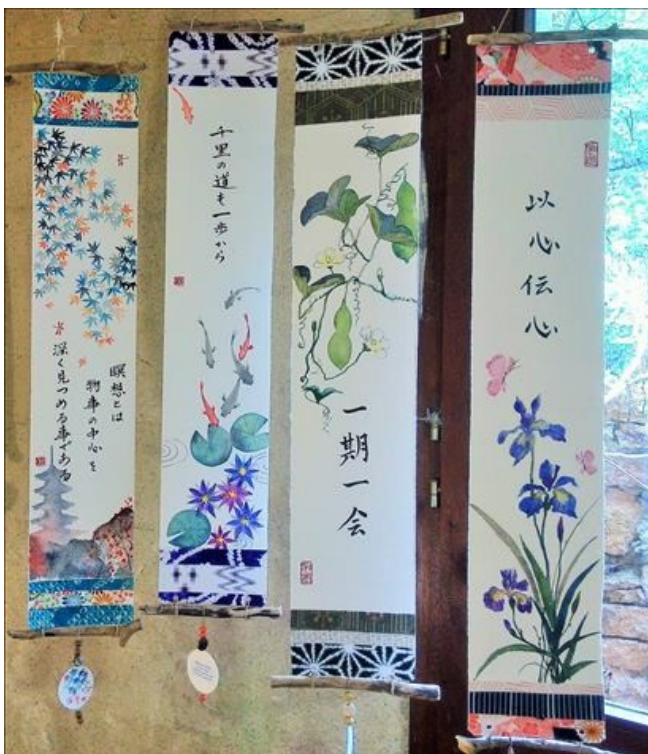 瞑想とは
物事の中心を
深く見つめる事である
千里の道も一歩から
一期一会
以心伝心